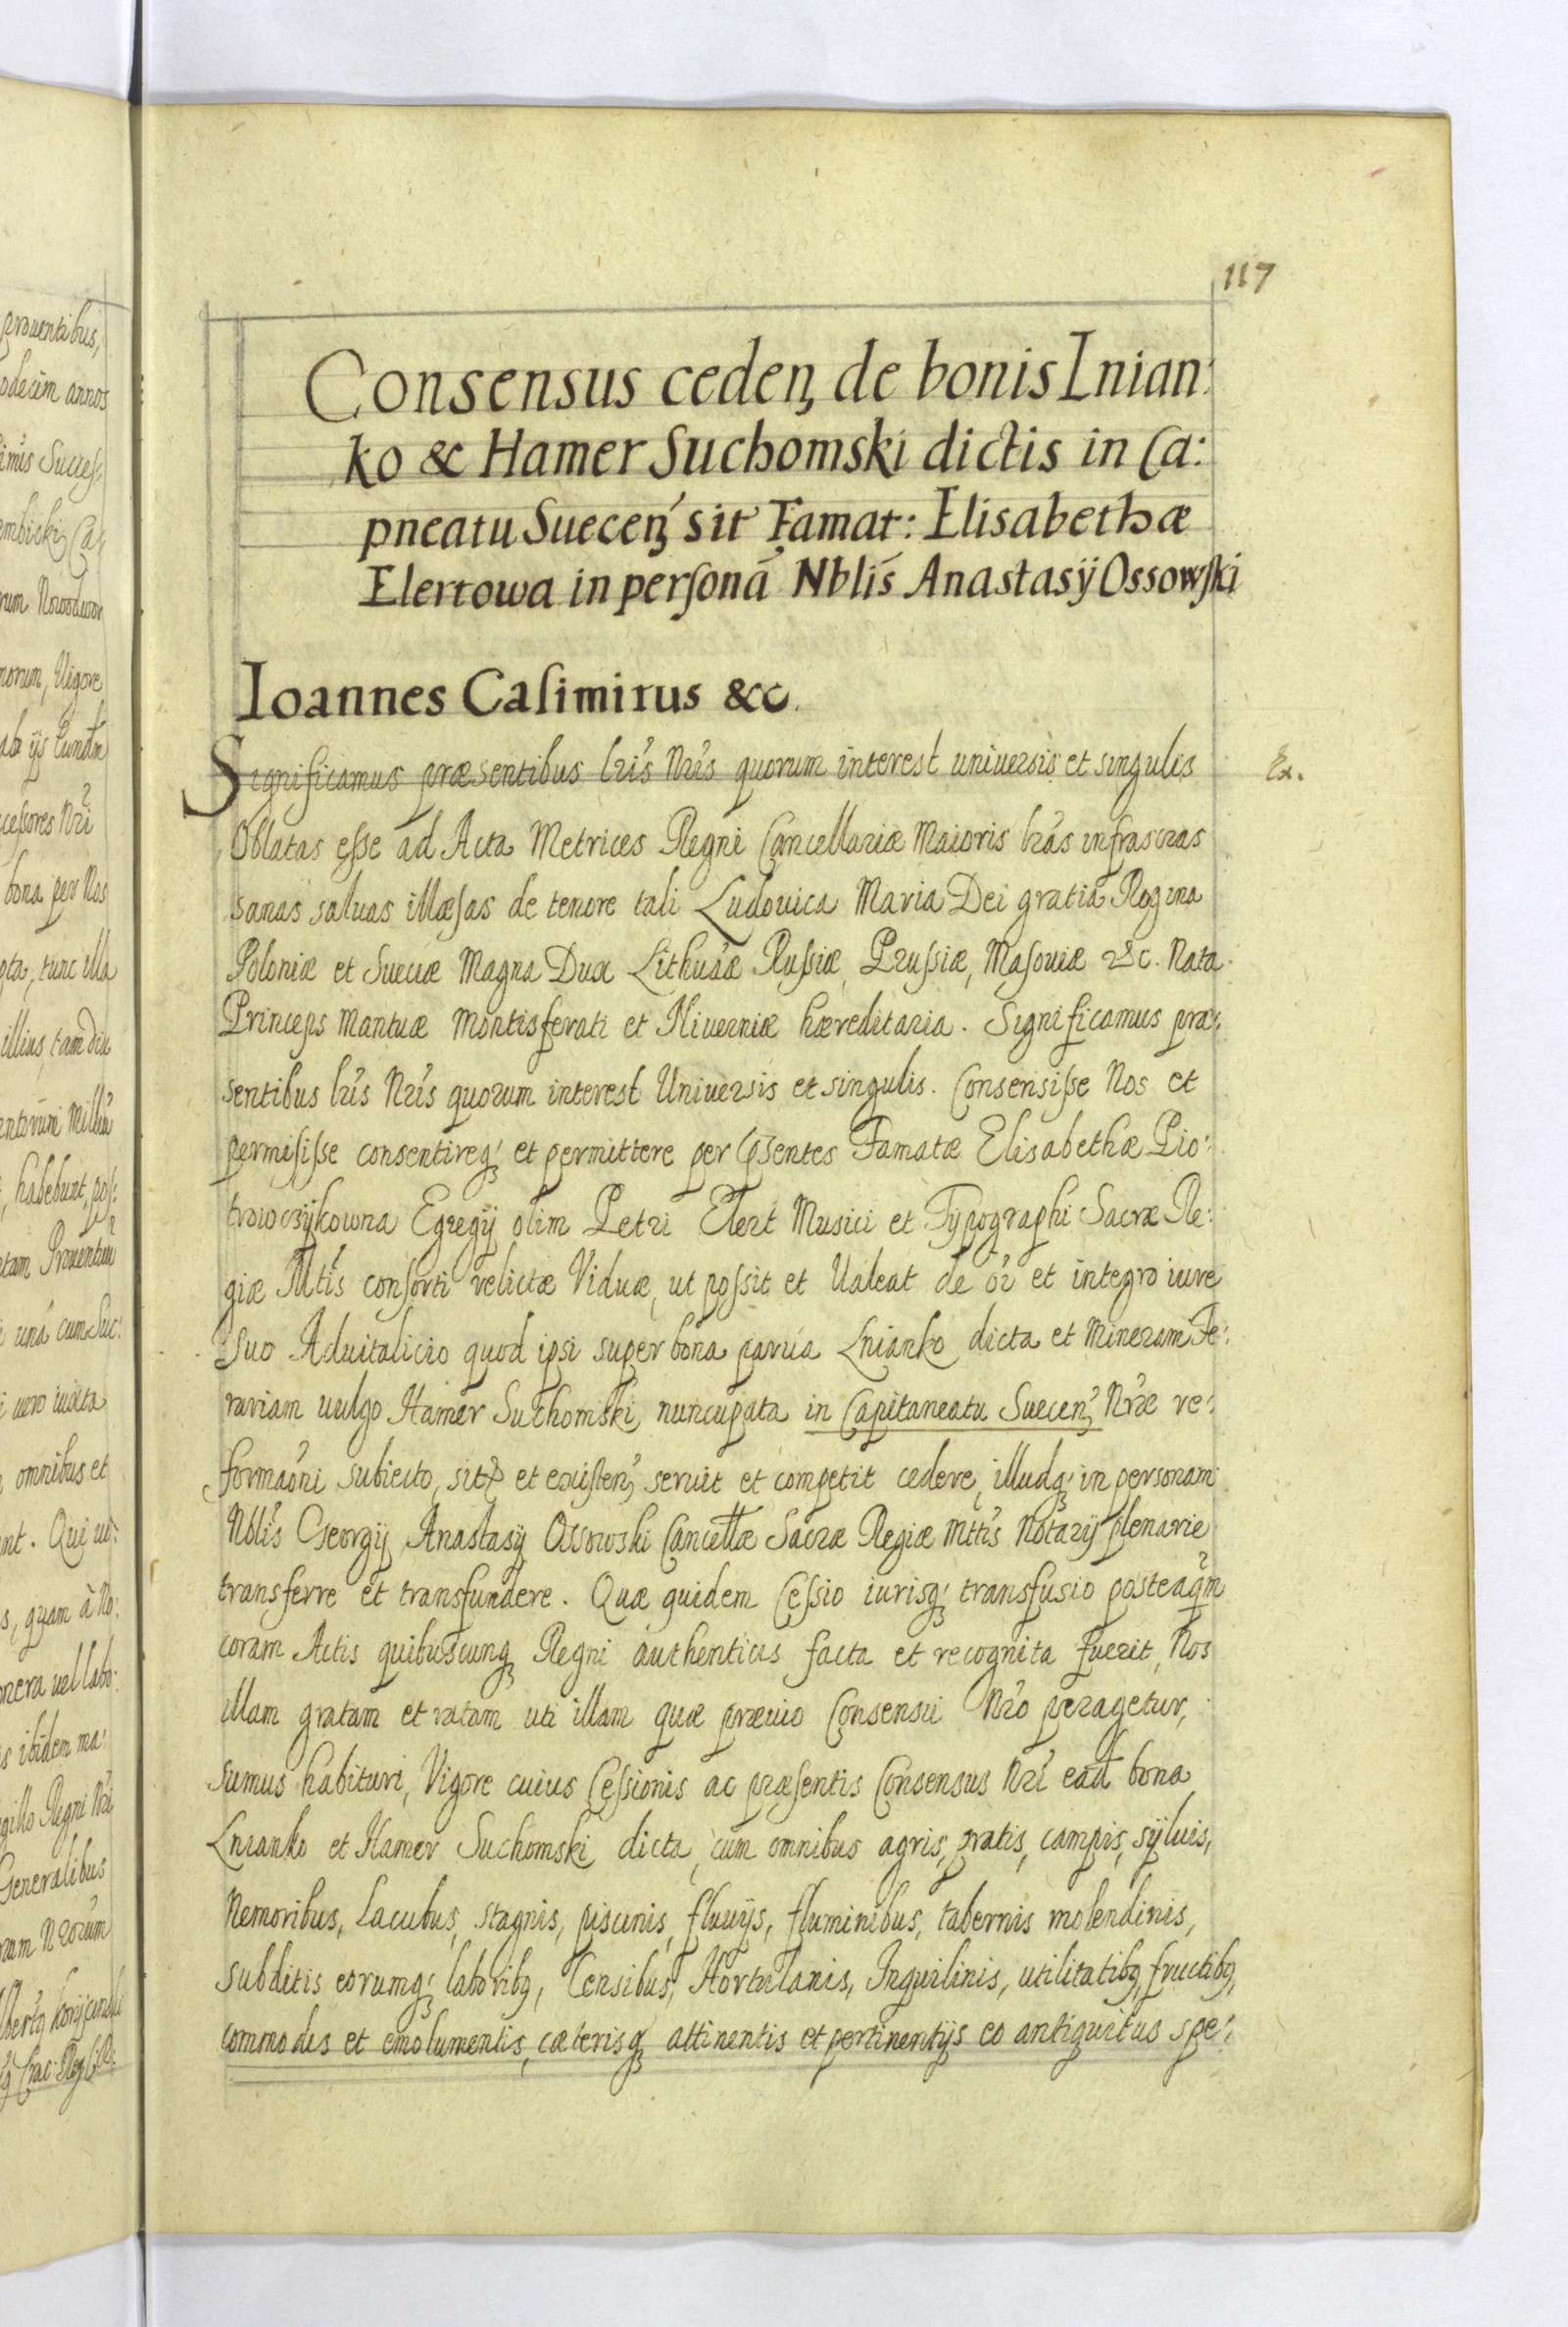 117
Consensus ceden, de bonis Lnian:
ko & Hamer Suchomski dictis in Ca:
pneatu Suecen, sit Famat: Elisabethæ
Elertowa in personã Nblis Anastasÿ Ossowski
Ioannes Casimirus &c.
Significamus præsentibus lris Nris quorum interest universis et singulis
Ex.
Oblatas esse ad Acta Metrices Regni Cancellariæ Maioris lras infrascras
sanas saluas illæsas de tenore tali Ludouica Maria Dei gratia Regina
Poloniæ et Sueciæ Magna Dux Lithuãæ Russiæ, Prussiæ, Masouiæ &c. Nata
Princeps Mantuæ Montisferati et Niuerniæ hæreditaria. Significamus præ:
sentibus lris Nris quorum interest Universis et singulis. Consensisse Nos et
permisisse consentireq; et permittere per pñsentes Famatæ Elisabethæ Pio:
trowczÿkowna Egregÿ olim Petri Elert Musici et Typographi Sacræ Re:
giæ Mttis consorti relictæ Viduæ, ut possit et Ualeat de oi et integro iure
suo Aduitalicio quod ipsi super bona parua Lnianko dicta et Mineram Fe:
rariam uulgo Hamer Suchomski nuncupata in Capitaneatu Suecen, Nræ re:
formaõni subiecto, sit, et existen, seruit et competit cedere, illudq; in personam
Nblis Georgÿ Anastasÿ Ossowski Cancellæ Sacræ Regiæ Mttis Notarÿ plenarie
transferre et transfundere. Quæ quidem Cessio iurisq; transfusio posteaqm
coram Actis quibuscunq; Regni authenticis facta et recognita fuerit, Nos
illam gratam et ratam uti illam quæ præuio Consensu Nro peragetur,
sumus habituri, Vigore cuius Cessionis ac præsentis Consensus Nri ead bona
Lnianko et Hamer Suchomski dicta, cum omnibus agris, pratis, campis, sÿluis,
Nemoribus, Lacubus, stagnis, piscinis, fluuÿs, fluminibus, tabernis molendinis,
subditis eorumq; laboribq, Censibus, Hortulanis, Inquilinis, utilitatibq, fructibq,
commodis et emolumentis, cæterisq; attinentis et pertinentÿs eo antiquitus spe:
prouentibus,
odecim annos
Succes:
Nowodwor
norum, Uigore
ab ÿs
cessores Nri
bona per Nos
tunc illa
illius, tam diu
habebunt, pos:
unà cum Suc:
uero iuxta
omnibus et
nt. Qui ui:
s, quam à No:
onera uel labo:
s ibidem ma:
gillo Regni Nri
Generalibus